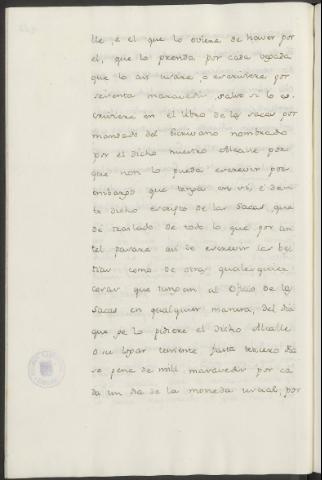 lle, e el que lo oviere de haver por
el, que lo prenda por cada vegada
que lo asi levare, o escriviere por
sesenta maravedis, salvo si lo es-
criviere en el libro de las sacas por
mandado del Escrivano nombrado
por el dicho nuestro Alcalle por-
que non lo pueda escrevir por
embargo que tenga en sí, e den
te dicho escripto de las Sacas, que
dé traslado de todo lo que por an
tel pasare asi de escrevir las bes
tias como de otras qualesquiera
cosas que tengan al Oficio de las
Sacas en qualquier manera, del dia
que se lo pidiere el dicho Alcalle
o su lugar teniente fasta tercero dia
so pena de mill maravedis por ca
da un dia de la moneda usual, por